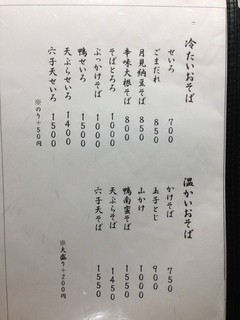 冷たいおそば
せいろ 700
ごまだれ 850
月見納豆そば 850
辛味大根そば 800
そばとろろ 1000
ぶっかけそば 1000
鴨せいろ 1500
天ぷらせいろ 1400
六子天せいろ 1550
※のり+50円
温かいおそば
かけそば 750
玉子とじ 900
山かけ 1000
鴨南蛮そば 1550
天ぷらそば 1450
六子天そば 1550
※大盛り+200円